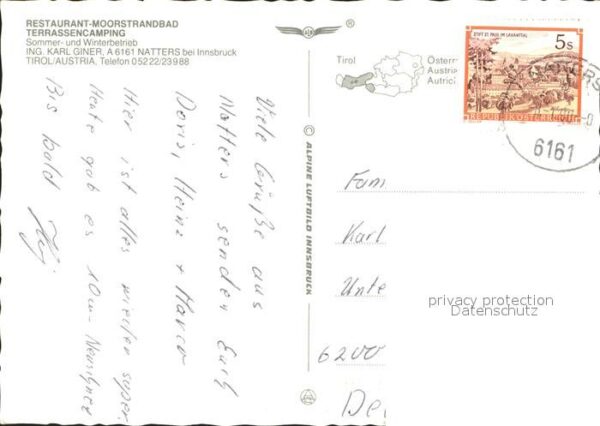 RESTAURANT-MOORSTRANDBAD
TERRASSENCAMPING
Sommer- und Winterbetrieb
ING. KARL GINER, A 6161 NATTERS bei Innsbruck
TIROL/AUSTRIA, Telefon 05222/23988
Viele Grüße aus
Natters senden Euch
Doris, Heinz + Marco
Hier ist alles wieder super.
Heute gab es 10cm Neuschnee
Bis bald
© ALPINE LUFTBILD INNSBRUCK
®
Tirol
Österr
Austria
Autric
STIFT ST. PAUL IM LAVANTTAL
5s
REPUBLIK ÖSTERREICH
6161
Fam
Karl
Unte
6200
De
privacy protection
Datenschutz